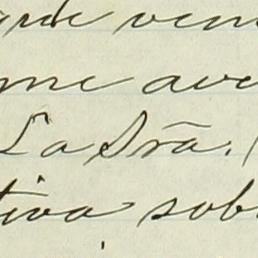 arde ven
me ave
La Srã. (
tiva sob